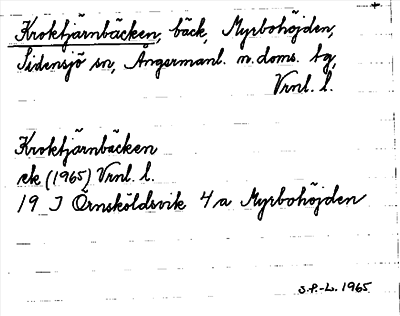 Kroktjärnbäcken, bäck, Myrbohöjden,
Sidensjö sn, Ångermanl. n. doms. tg,
Vrnl. l.
Kroktjärnbäcken
ek (1965) Vrnl. l.
19 J Örnsköldsvik 4 a Myrbohöjden
S.P.-L. 1965